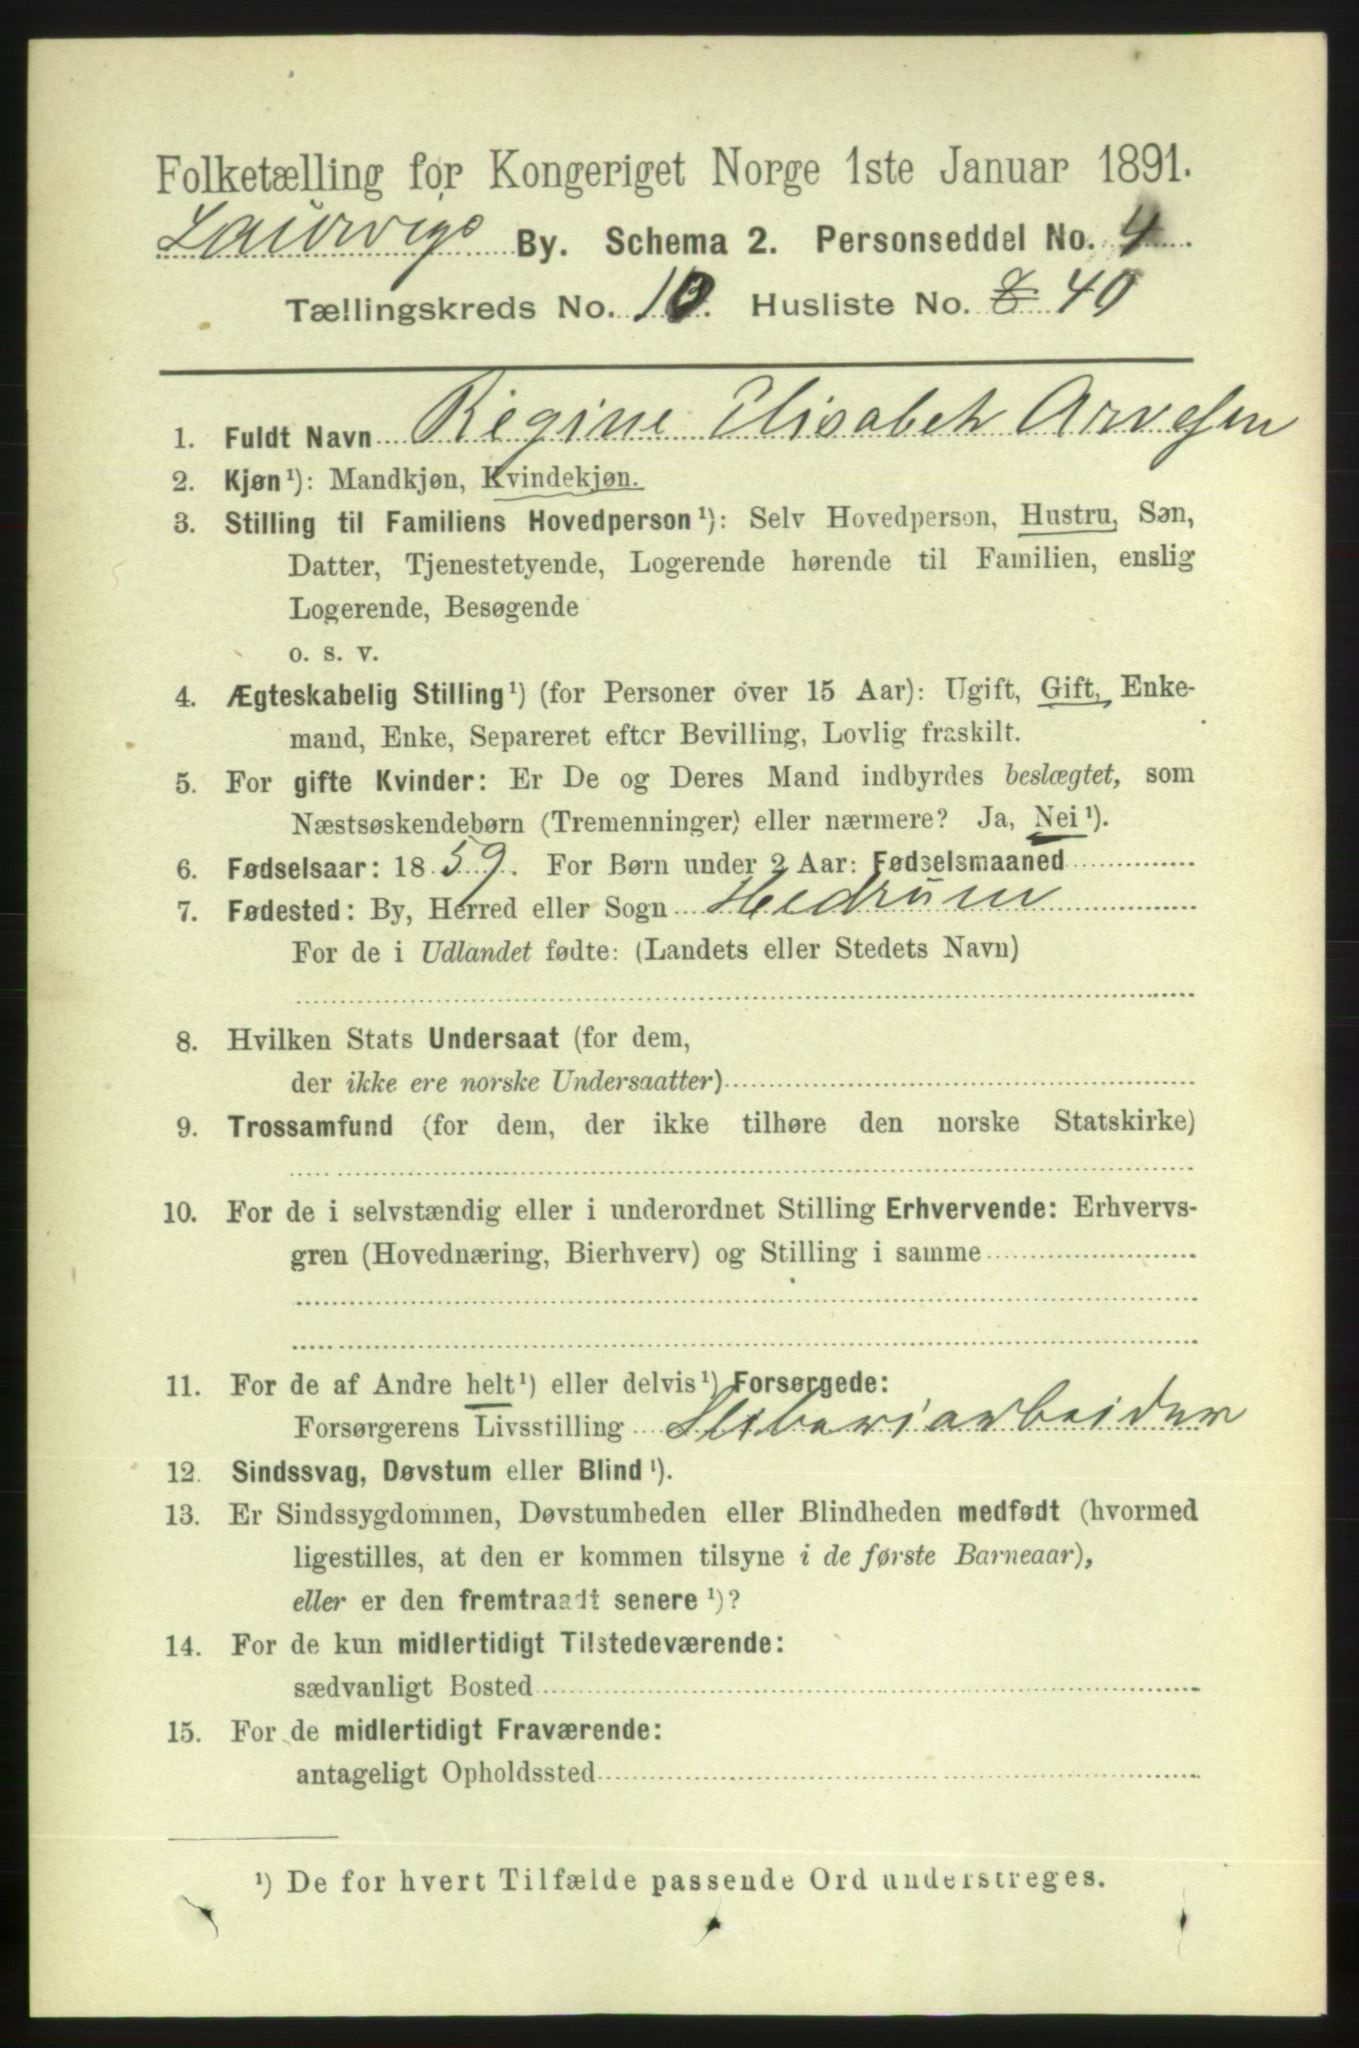 Folketælling for Kongeriget Norge 1ste Januar 1891.
Laurvigs By. Schema 2. Personseddel No. 4
Tællingskreds No. 10. Husliste No. 8 40
1. Fuldt Navn Regine Elisabeth Arvesen
2. Kjøn¹): Mandkjøn, Kvindekjøn.
3. Stilling til Familiens Hovedperson¹): Selv Hovedperson, Hustru, Søn,
Datter, Tjenestetyende, Logerende hørende til Familien, enslig
Logerende, Besøgende
o. s. v.
4. Ægteskabelig Stilling¹) (for Personer over 15 Aar): Ugift, Gift, Enke-
mand, Enke, Separeret efter Bevilling, Lovlig fraskilt.
5. For gifte Kvinder: Er De og Deres Mand indbyrdes beslægtet, som
Næstsøskendebørn (Tremenninger) eller nærmere? Ja, Nei¹).
6. Fødselsaar: 1859. For Børn under 2 Aar: Fødselsmaaned
7. Fødested: By, Herred eller Sogn Hedrum
For de i Udlandet fødte: (Landets eller Stedets Navn)
8. Hvilken Stats Undersaat (for dem,
der ikke ere norske Undersaatter)
9. Trossamfund (for dem, der ikke tilhøre den norske Statskirke)
10. For de i selvstændig eller i underordnet Stilling Erhvervende: Erhvervs-
gren (Hovednæring, Bierhverv) og Stilling i samme
11. For de af Andre helt¹) eller delvis¹) Forsørgede:
Forsørgerens Livsstilling Sliberiarbeider
12. Sindssvag, Døvstum eller Blind¹).
13. Er Sindssygdommen, Døvstumheden eller Blindheden medfødt (hvormed
ligestilles, at den er kommen tilsyne i de første Barneaar),
eller er den fremtraadt senere¹)?
14. For de kun midlertidigt Tilstedeværende:
sædvanligt Bosted
15. For de midlertidigt Fraværende:
antageligt Opholdssted
¹) De for hvert Tilfælde passende Ord understreges.